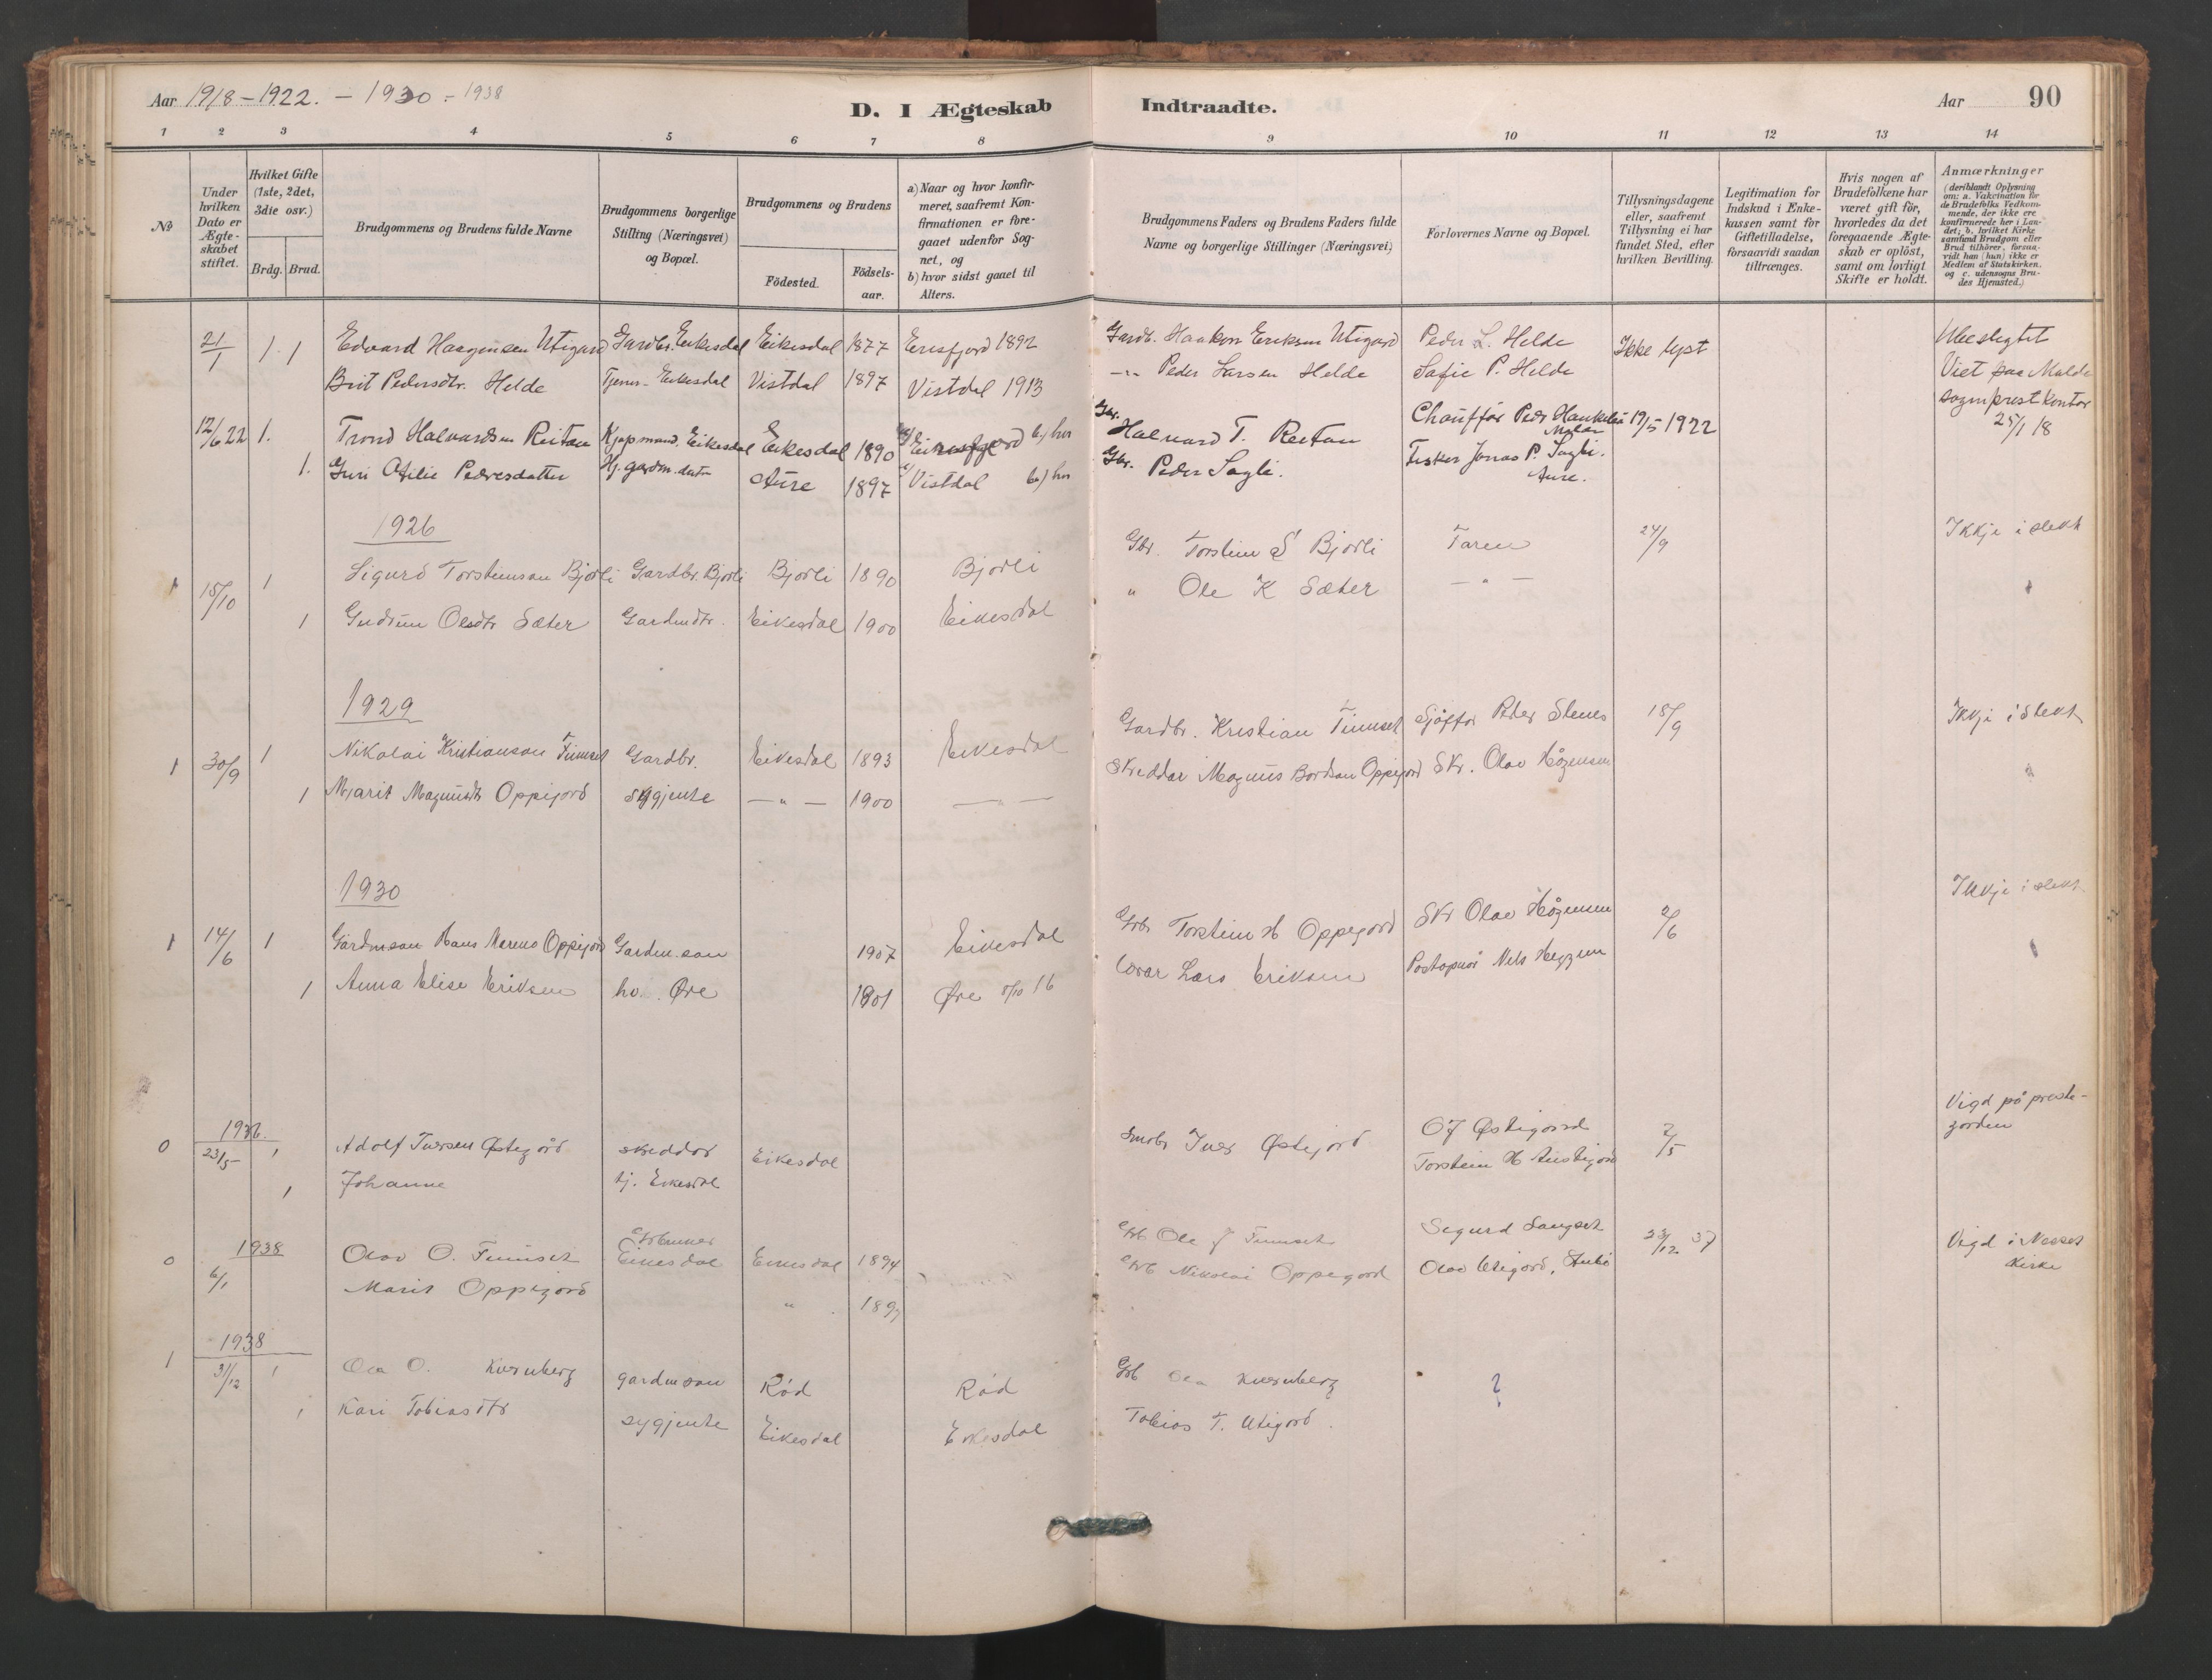 Aar 1918-1922. - 1930 - 1938
D. I Ægteskab Indtraadte.
Aar 90
1 2 3 4 5 6 7 8 9 10 11 12 13 14
No
Under hvilken Dato er Ægteskabet stiftet.
Hvilket Gifte (1ste, 2det, 3die osv.)
Brdg. Brud.
Brudgommens og Brudens fulde Navne
Brudgommens borgerlige Stilling (Næringsvei) og Bopæl.
Brudgommens og Brudens
Födested.
Födsels-aar.
a) Naar og hvor konfirmeret, saafremt Konfirmationen er foregaaet udenfor Sognet, og
b) hvor sidst gaaet til Alters.
Brudgommens Faders og Brudens Faders fulde Navne og borgerlige Stillinger (Næringsvei)
Forlovernes Navne og Bopæl.
Tillysningsdagene eller, saafremt Tillysning ei har fundet Sted, efter hvilken Bevilling.
Legitimation for Indskud i Enkekassen samt for Giftetilladelse, forsaavidt saadan tiltrænges.
Hvis nogen af Brudefolkene har været gift för, hvorledes da det foregaaende Ægteskab er oplöst, samt om lovligt Skifte er holdt.
Anmærkninger (deriblandt Oplysning om: a. Vakcination for de Brudefolks Vedkommende, der ikke ere konfirmerede her i Landet; b. hvilket Kirkesamfund Brudgom eller Brud tilhörer, forsaavidt han (hun) ikke er Medlem af Statskirken, og c. udensogns Brudes Hjemsted.)
21/1 1. 1 Edvard Haagensen Utigard Gardbr. Eikesdal Eikesdal 1877 Eresfjord 1892 Gardb. Haakon Eriksen Utigard Peder L. Helde Ikke lyst Ubeslegtet
Brit Pedersdtr. Helde Tjener- Eikesdal Vistdal 1897 Vistdal 1913 -"- Peder Larsen Helde Safie P. Helde Viet paa Molde
sogneprestkontor
25/1 18
12/6 22 1. Trond Halvardsen Reitan Kjøpmand. Eikesdal Eikesdal 1890 b) her Gbr. Halvard T. Reitan Chauffør Peder 19/5 1922
1. Guri Otilie Pedersdatter Aure 1897 Vistdal b) her Gbr. Peder Sagli. Fisker Jonas P. Sagli.
Aure.
1926
1 15/10 1 Sigurd Torsteinson Bjorli Gardbr. Bjorli Bjorli 1890 Bjorli Gbr. Torstein S Bjorli Faren 24/9 Ikkje i slekt
1 Gudrun Olsdtr Sæter Gardmdtr. Eikesdal 1900 Eikesdal " Ole K Sæter - " -
1929
1 30/9 1 Nikolai Kristianson Finnset Gardbr. Eikesdal 1893 Eikesdal Gardbr. Kristian Finnset Sjåffør Peder Stenes 15/9 Ikkje i slekt
1 Marit Magnusdtr Oppigard sygjente - " - 1900 - " - Skreddar Magnus Bordson Oppigord Skr. Olav Høgensen
1930
1 14/6 1 Gardmson Hans Mareno Oppigard Gardm.son 1907 Eikesdal Gbr Torstein H Oppegord Skr Olav Høgensen 2/6 Ikkje i slekt.
1 Anna Elise Eriksen ho. Øre 1901 Øre 8/10 16 Lars Eriksen Postopnar Nils Heggem
1936.
0 23/5 1 Adolf Iversen Østigård skreddar Eikesdal Smbr Iver Østigord O J Østigard 2/5 Vigd på preste-
garden
1 Johanne tj. Eikesdal Torstein H Austigard
1938
0 6/1 Olav O. Finnset Gbrukar Eikesdal Eikesdal 1894 Grb Ole J Finnset Sigurd Langset 23/12 37 Vigd i Nesset
Kirke
Marit Oppigård " 1897 Grb Nikolai Oppegard Olav Utigård,
1938
1 31/12 1 Ola O. Kvernberg gardmson Rød Rød Grb Ola Kvernberg ?
1 Kari Tobiasdtr sygjente Eikesdal Eikesdal Tobias T. Utigard.